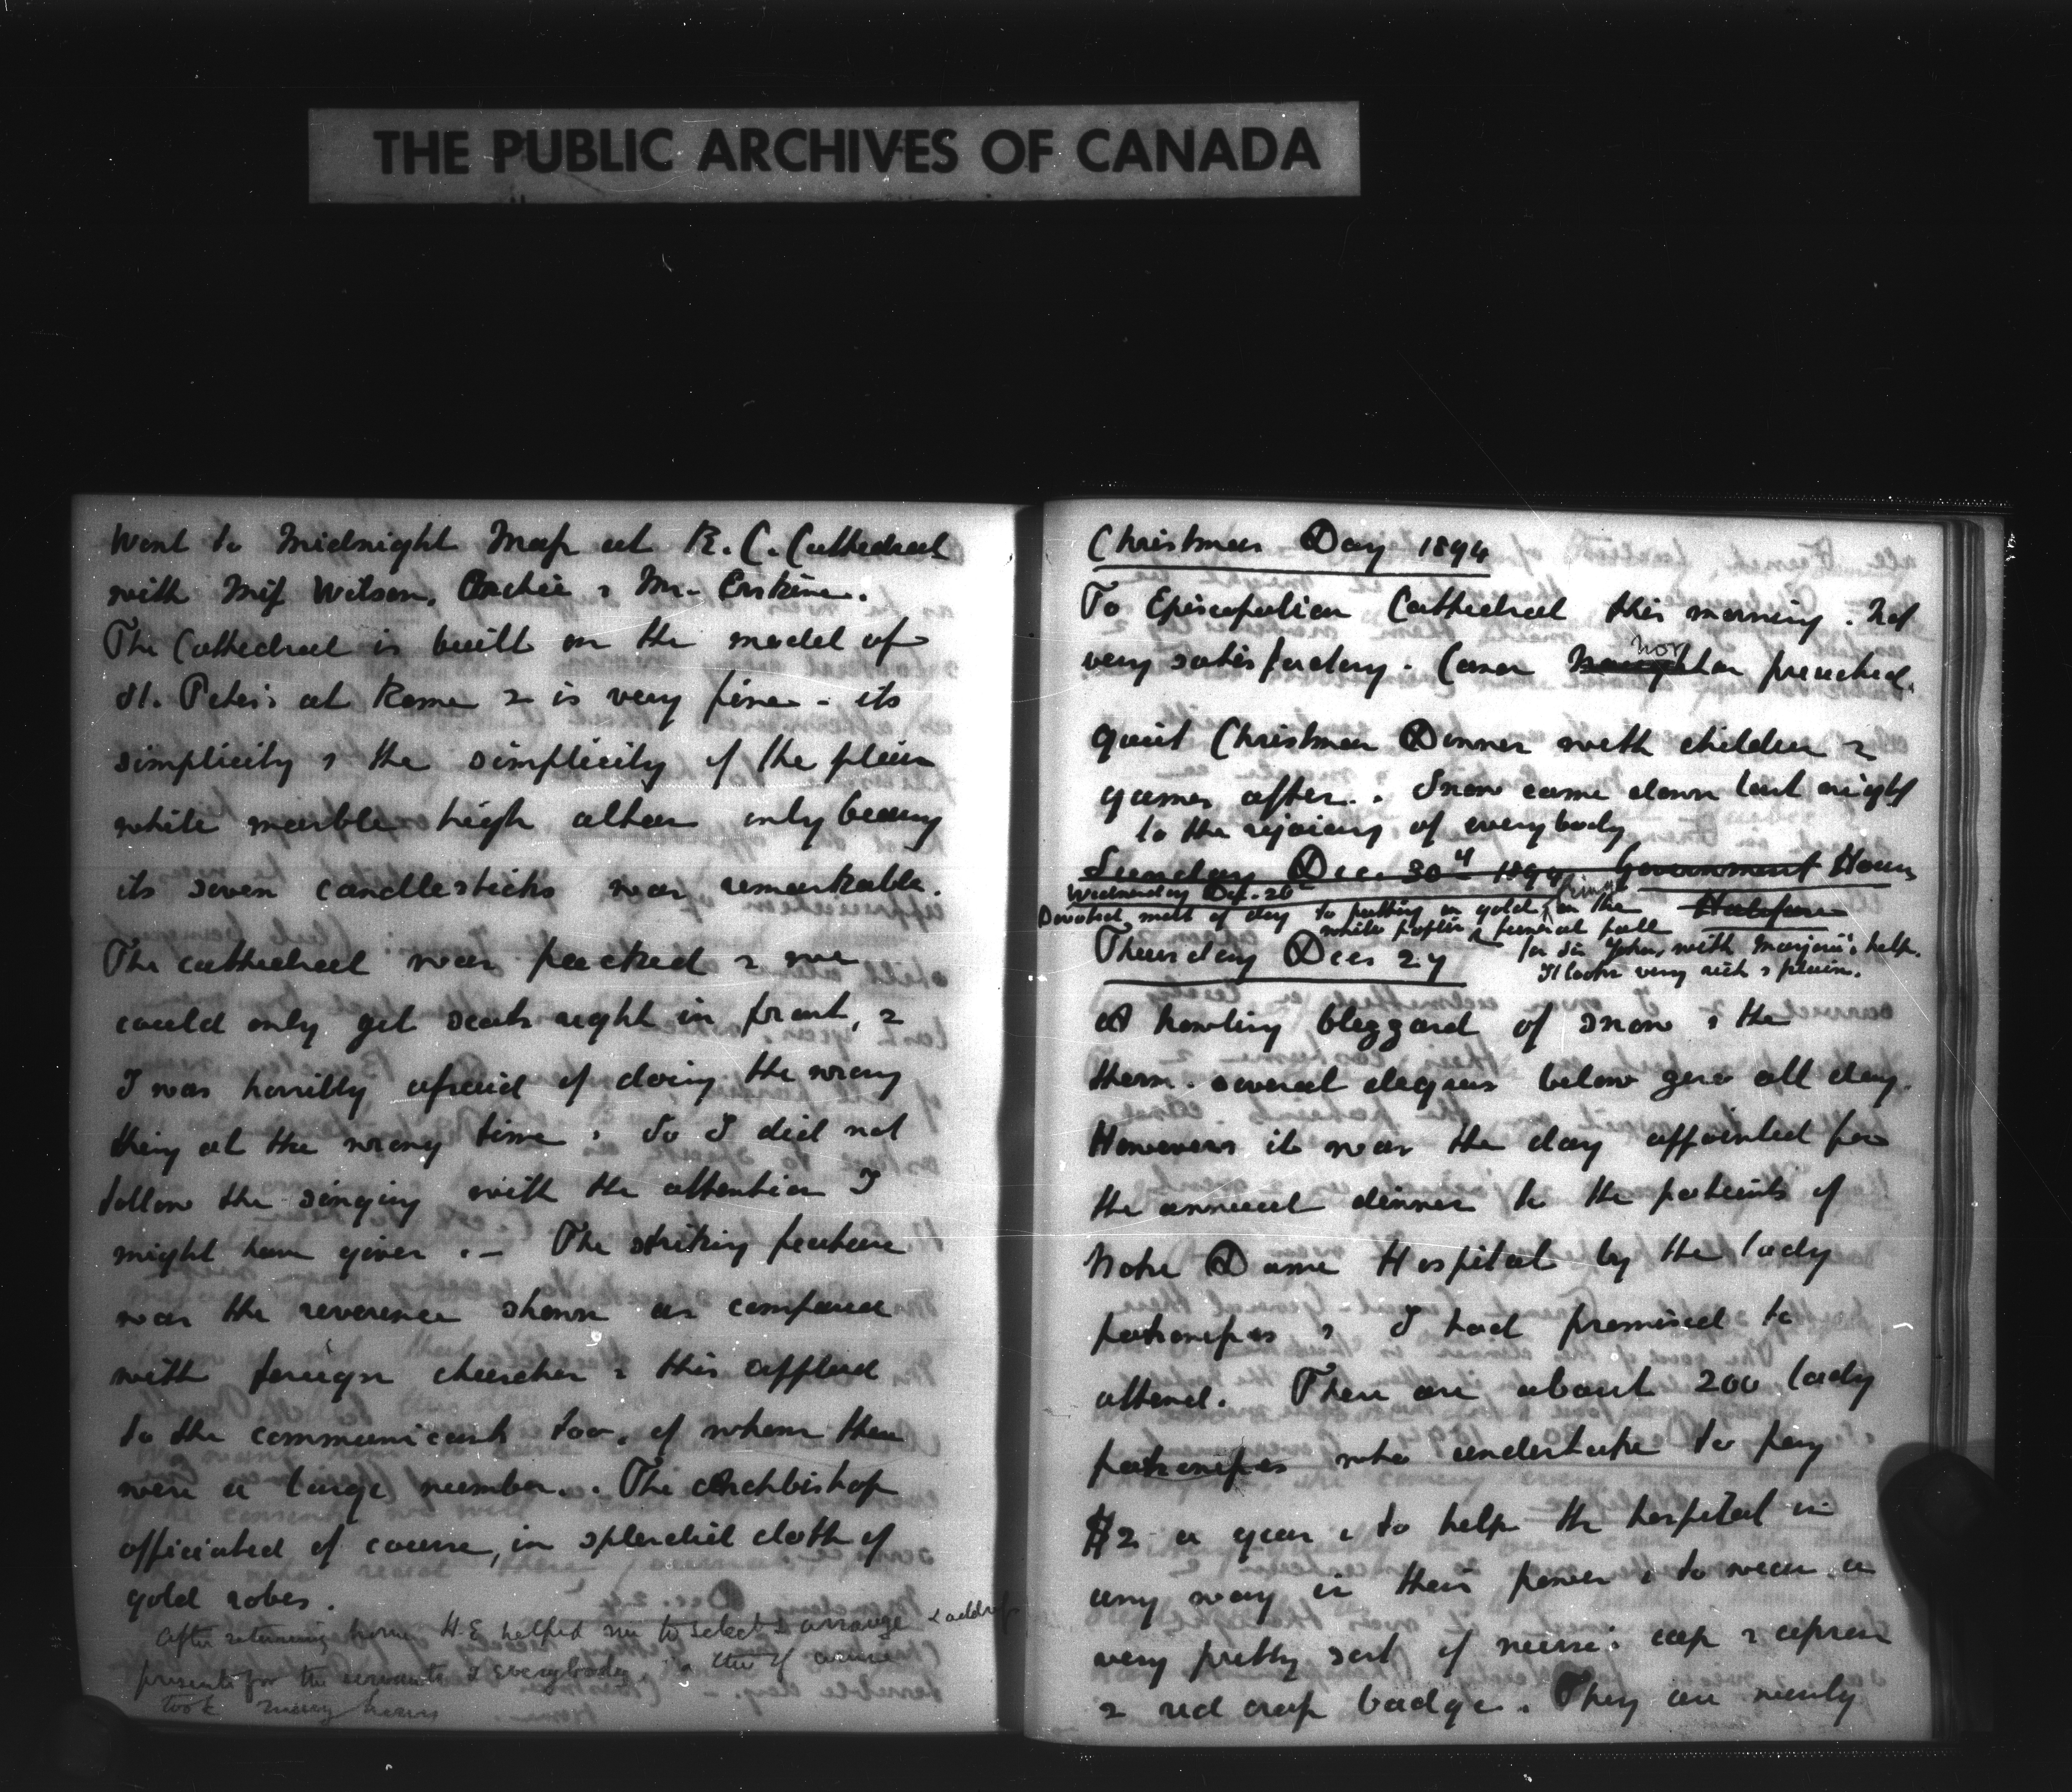 THE PUBLIC ARCHIVES OF CANADA
Went to Midnight Mass at R.C. Cathedral
with Miss Wilson, Archie & Mr. Erskine.
The Cathedral is built on the model of
St. Peter's at Rome & is very fine - its
simplicity & the simplicity of the plain
white marble high altar only bearing
its seven candlesticks was remarkable.
The cathedral was packed & we
could only get seats right in front, &
I was horribly afraid of doing the wrong
thing at the wrong time & so I did not
follow the singing with the attention I
might have given. - The striking feature
was the reverence shown as compared
with foreign churches & this applied
to the communicants too, of whom there
were a large number. The Archbishop
officiated of course, in splendid cloth of
gold robes.
After returning home H.E. helped me to select & arrange & address
presents for the servants & everybody, & this of course
took many hours
Christmas Day 1894
To Episcopalian Cathedral this morning. Not
very satisfactory. Canon Norton preached.
Quiet Christmas Dinner with children &
games after. Snow came down last night
to the rejoicing of everybody
Sunday Dec. 30th 1894 Government House
Halifax
Wednesday Dec. 26
Devoted most of day to putting on gold fringe on the
white poplin & funeral pall
for Sir John, with Marjorie's help.
It looks very rich & plain.
Thursday Dec 27
A howling blizzard of snow & the
therm. several degrees below zero all day.
However it was the day appointed for
the annual dinner to the patients of
Notre Dame Hospital by the lady
patronesses & I had promised to
attend. There are about 200 lady
patronesses who undertake to pay
$2 a year & to help the hospital in
any way in their power & to wear a
very pretty sort of nurse's cap & apron
& red cross badge. They are nearly